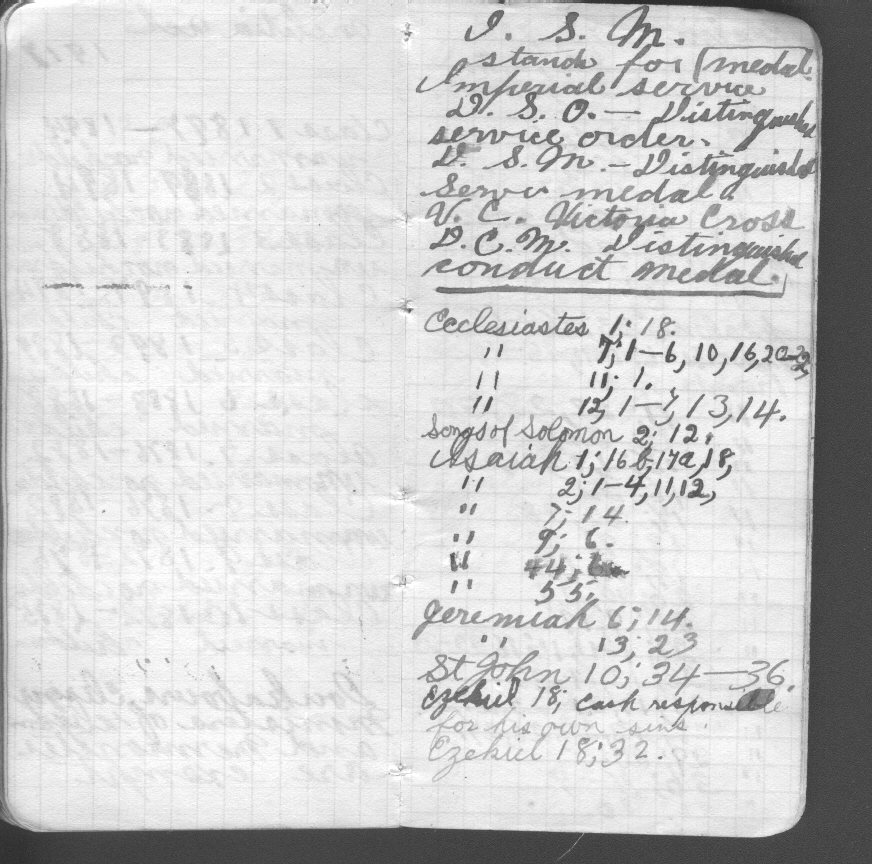 I. S. M.
stands for medal.
Imperial service
D. S. O. — Distinguished
service order.
D. S. M. — Distinguished
Serv medal.
V. C. Victoria Cross
D. C. M. Distinguished
conduct medal.
Ecclesiastes 1; 18.
" 7; 1—6, 10, 16, 20-22,
" 11; 1.
" 12, 1—7, 13, 14.
Songs of Solomon 2; 12.
Isaiah 1; 16 b, 17a, 18,
" 2; 1—4, 11, 12,
" 7; 14.
" 9; 6.
" 44;
" 55;
Jeremiah 6; 14.
" 13; 23
St John 10; 34—36.
Ezekiel 18; each responsible
for his own sins.
Ezekiel 18; 32.